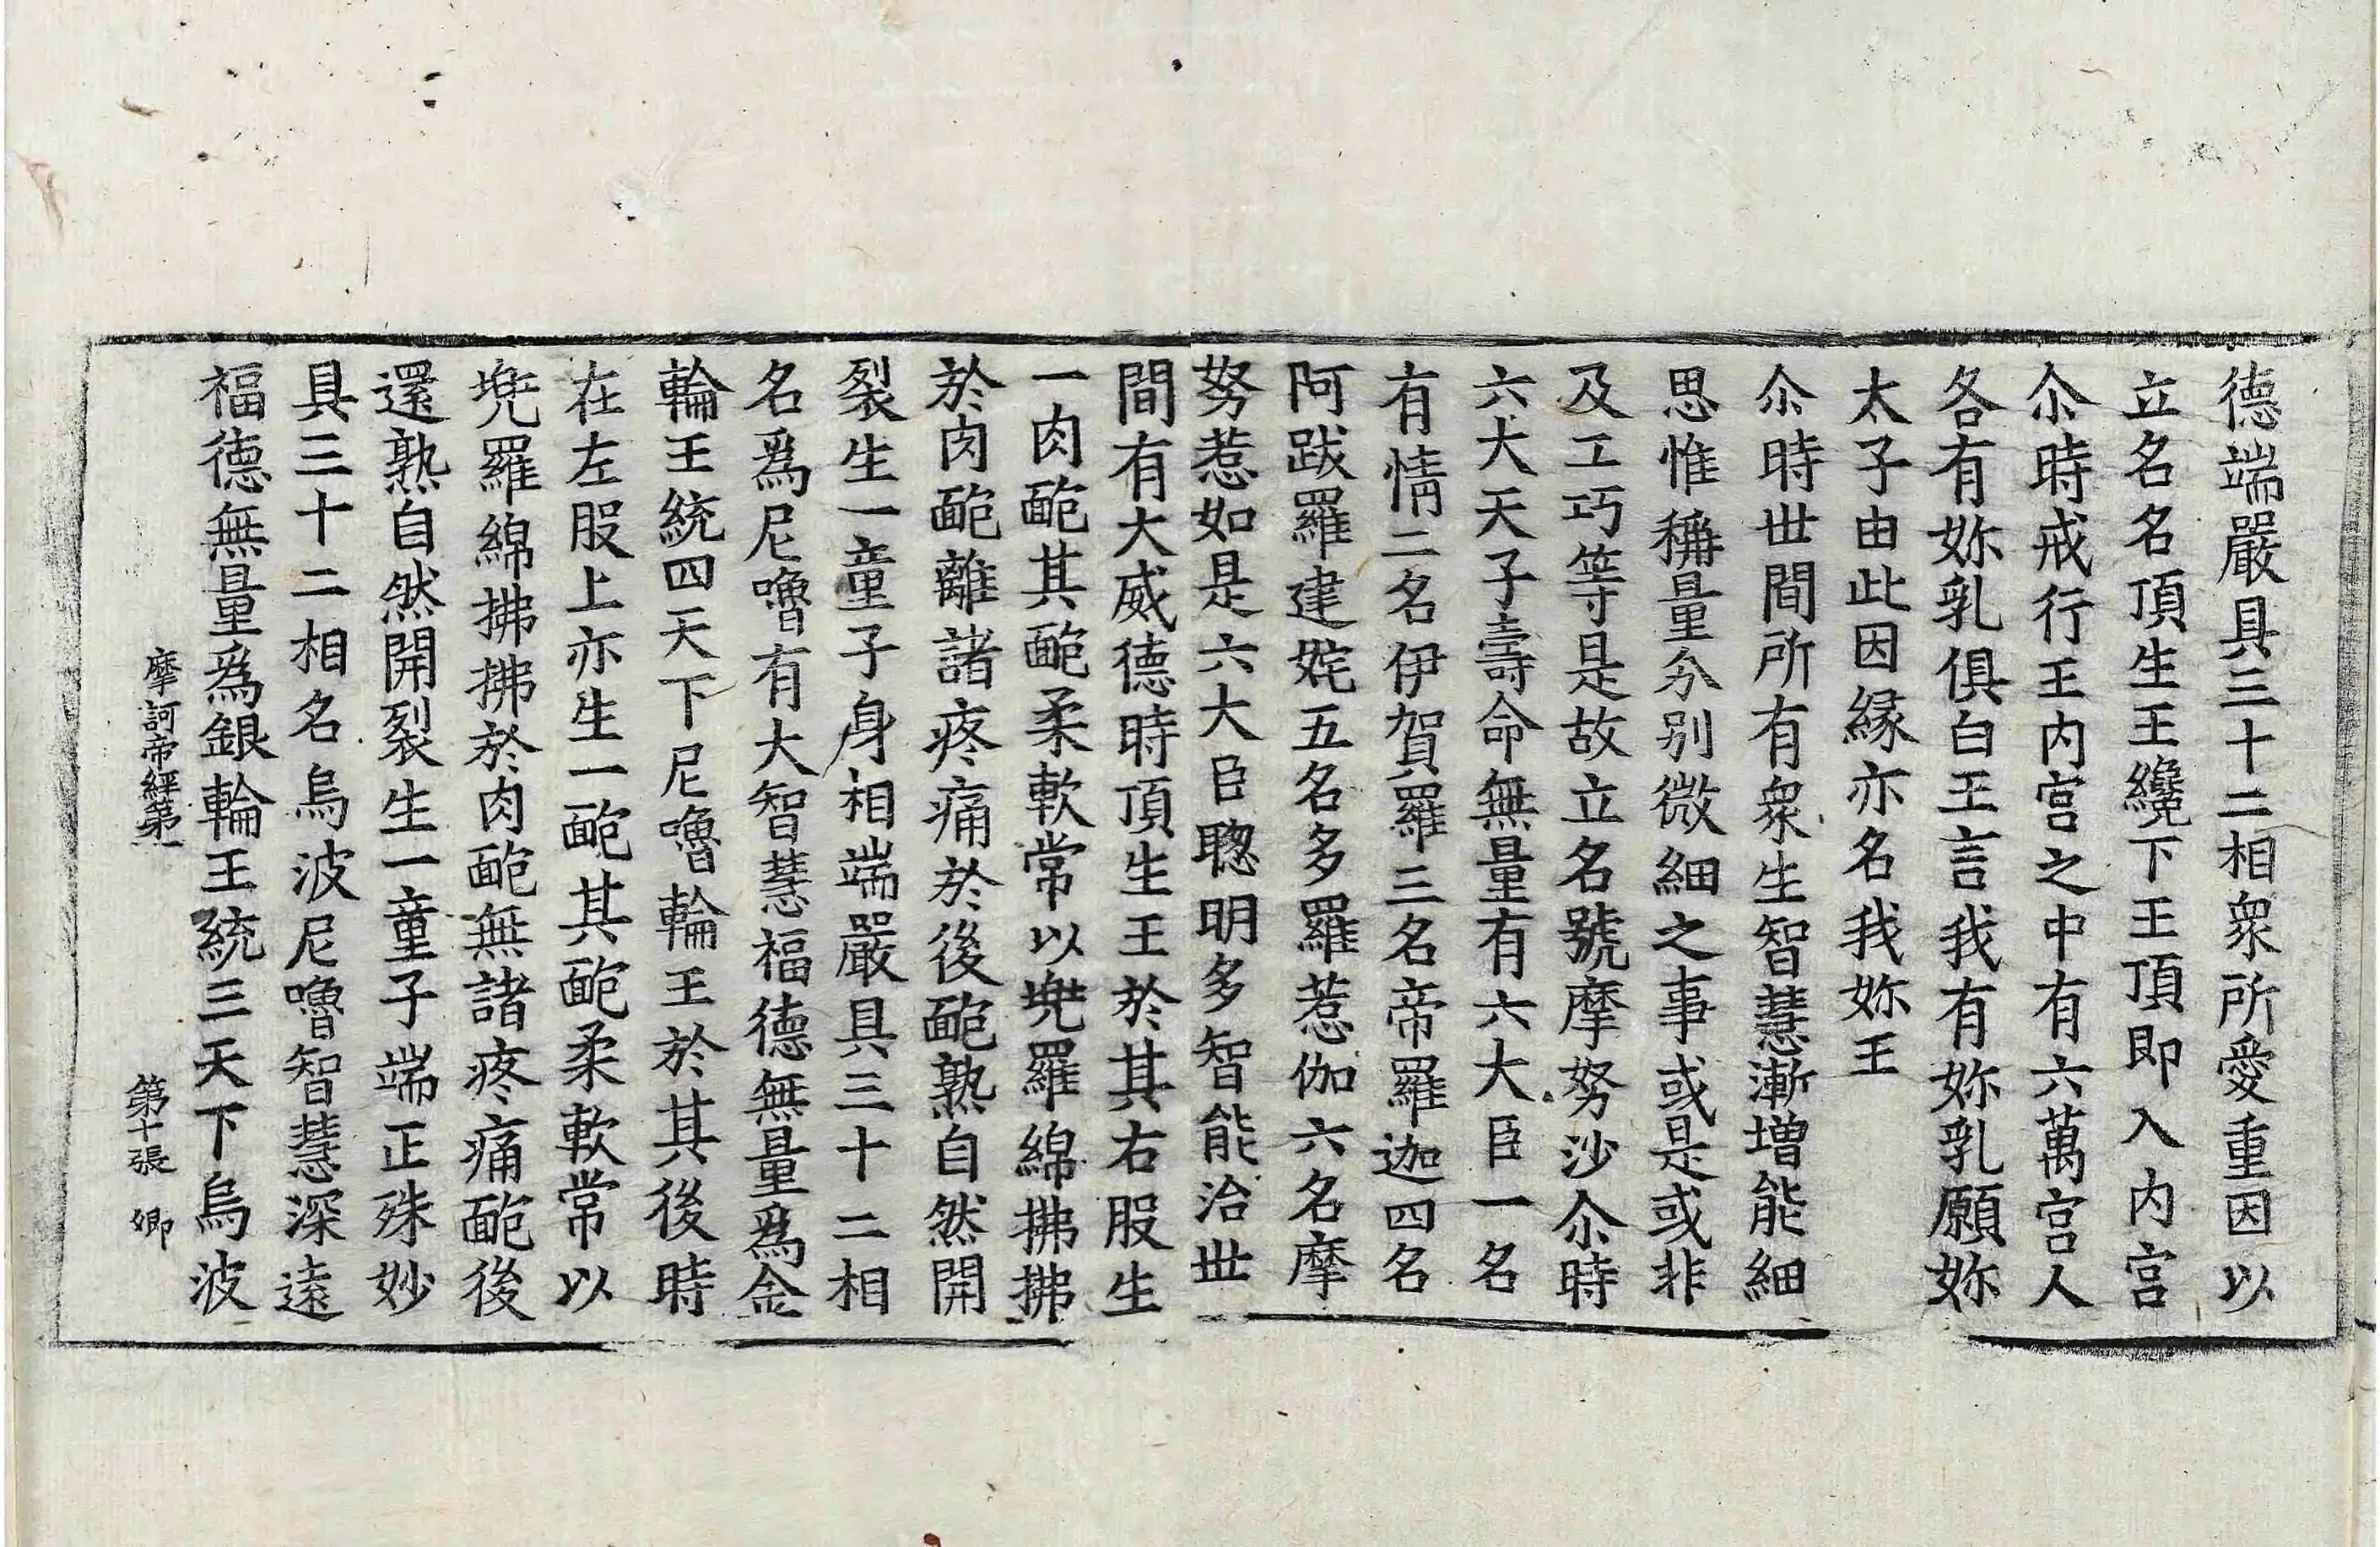 德端嚴具三十二相衆所愛重因以
立名名頂生王纔下王頂即入内宫
尒時戒行王内宫之中有六萬宫人
各有妳乳俱白王言我有妳乳願妳
太子由此因緣亦名我妳王
尒時世間所有衆生智慧漸增能細
思惟稱量分別微細之事或是或非
及工巧等是故立名號摩努沙尒時
六大天子壽命無量有六大臣一名
有情二名伊賀羅三名帝羅迦四名
阿跋羅建姹五名多羅惹伽六名摩
努惹如是六大臣聦明多智能治世
間有大威德時頂生王於其右股生
一肉皰其皰柔軟常以兠羅綿拂拂
於肉皰離諸疼痛於後皰熟自然開
裂生一童子身相端嚴具三十二相
名爲尼嚕有大智慧福德無量爲金
輪王統四天下尼嚕輪王於其後時
在左股上亦生一皰其皰柔軟常以
兠羅綿拂拂於肉皰無諸疼痛皰後
還熟自然開裂生一童子端正殊妙
具三十二相名烏波尼嚕智慧深遠
福德無量爲銀輪王統三天下烏波
摩訶帝經第一 第十張 卿